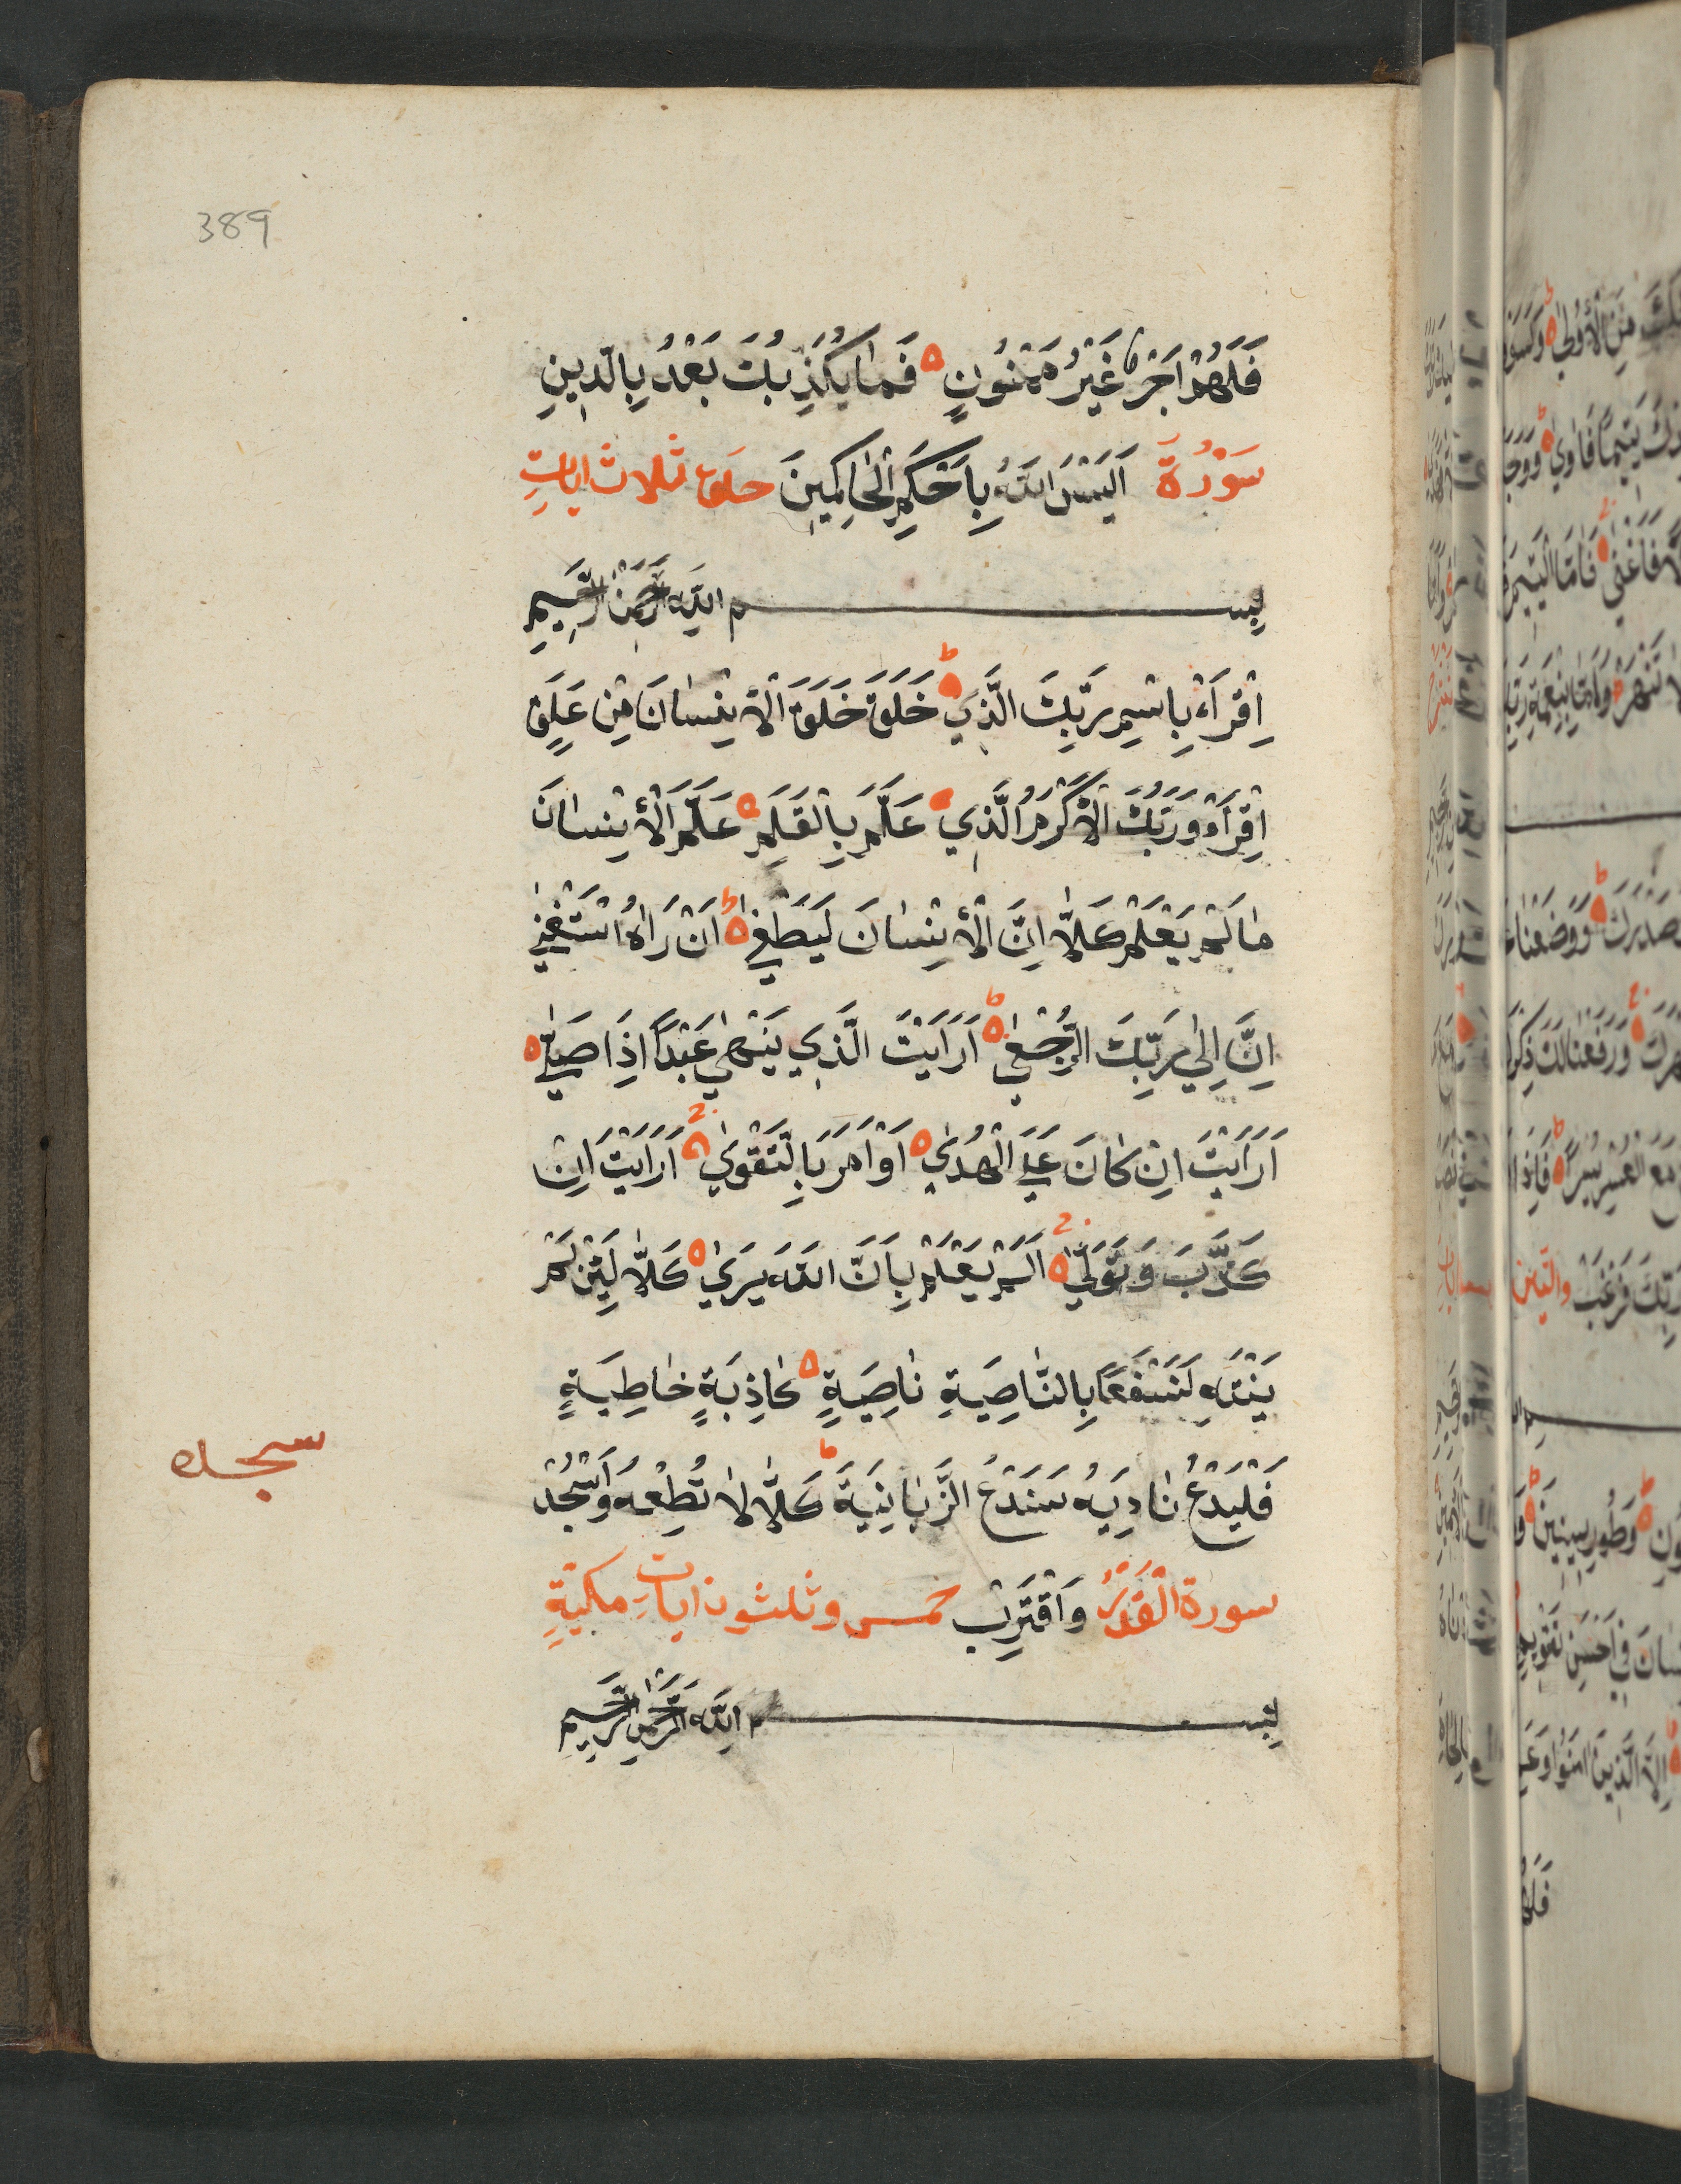 389
فَلَهُمْ اَجْرٌ غَيْرُ مَمْنُونٍ فَمَا يُكَذِّبُكَ بَعْدُ بِالدِّينِ
سَوْرُةَ اَلَيْسَ اللّٰهُ بِاَحْكَمِ الْحَاكِمِينَ ثلاث ايات
بِسم اللّٰهِ الرَّحْمٰنِ الرَّحِيمِ
اِقْرَاءْ بِاسْمِ رَبِّكَ الَّذِي خَلَقَ خَلَقَ الْاِنْسَانَ مِنْ عَلَقٍ
اِقْرَاءْ وَرَبُّكَ الْاَكْرَمُ الَّذِي عَلَّمَ بِالْقَلَمِ عَلَّمَ الْاِنْسَانَ
مَا لَمْ يَعْلَمْ كَلَّا اِنَّ الْاِنْسَانَ لَيَطْغٰى اَنْ رَاٰهُ اسْتَغْنٰى
اِنَّ اِلٰي رَبِّكَ الرُّجْعٰى اَرَاَيْتَ الَّذِي يَنْهٰى عَبْدًا اِذَا صَلّٰى
اَرَاَيْتَ اِنْ كَانَ عَلَي الْهُدٰي اَوْ اَمَرَ بِالتَّقْوٰي اَرَاَيْتَ اِنْ
كَذَّبَ وَتَوَلّٰي اَلَمْ يَعْلَمْ بِاَنَّ اللّٰهَ يَرٰي كَلَّا لَئِنْ لَمْ
يَنْتَهِ لَنَسْفَعًا بِالنَّاصِيَةِ نَاصِيَةٍ كَاذِبَةٍ خَاطِيَةٍ
فَلْيَدْعُ نَادِيَهُ سَنَدْعُ الزَّبَانِيَةَ كَلَّا لَا تُطِعْهُ وَاسْجُدْ
سجده
سورة الْقَدْرِ وَاقْتَرِبْ خمس وثلثون ايات مكية
بِسم اللّٰهِ الرَّحْمٰنِ الرَّحِيمِ